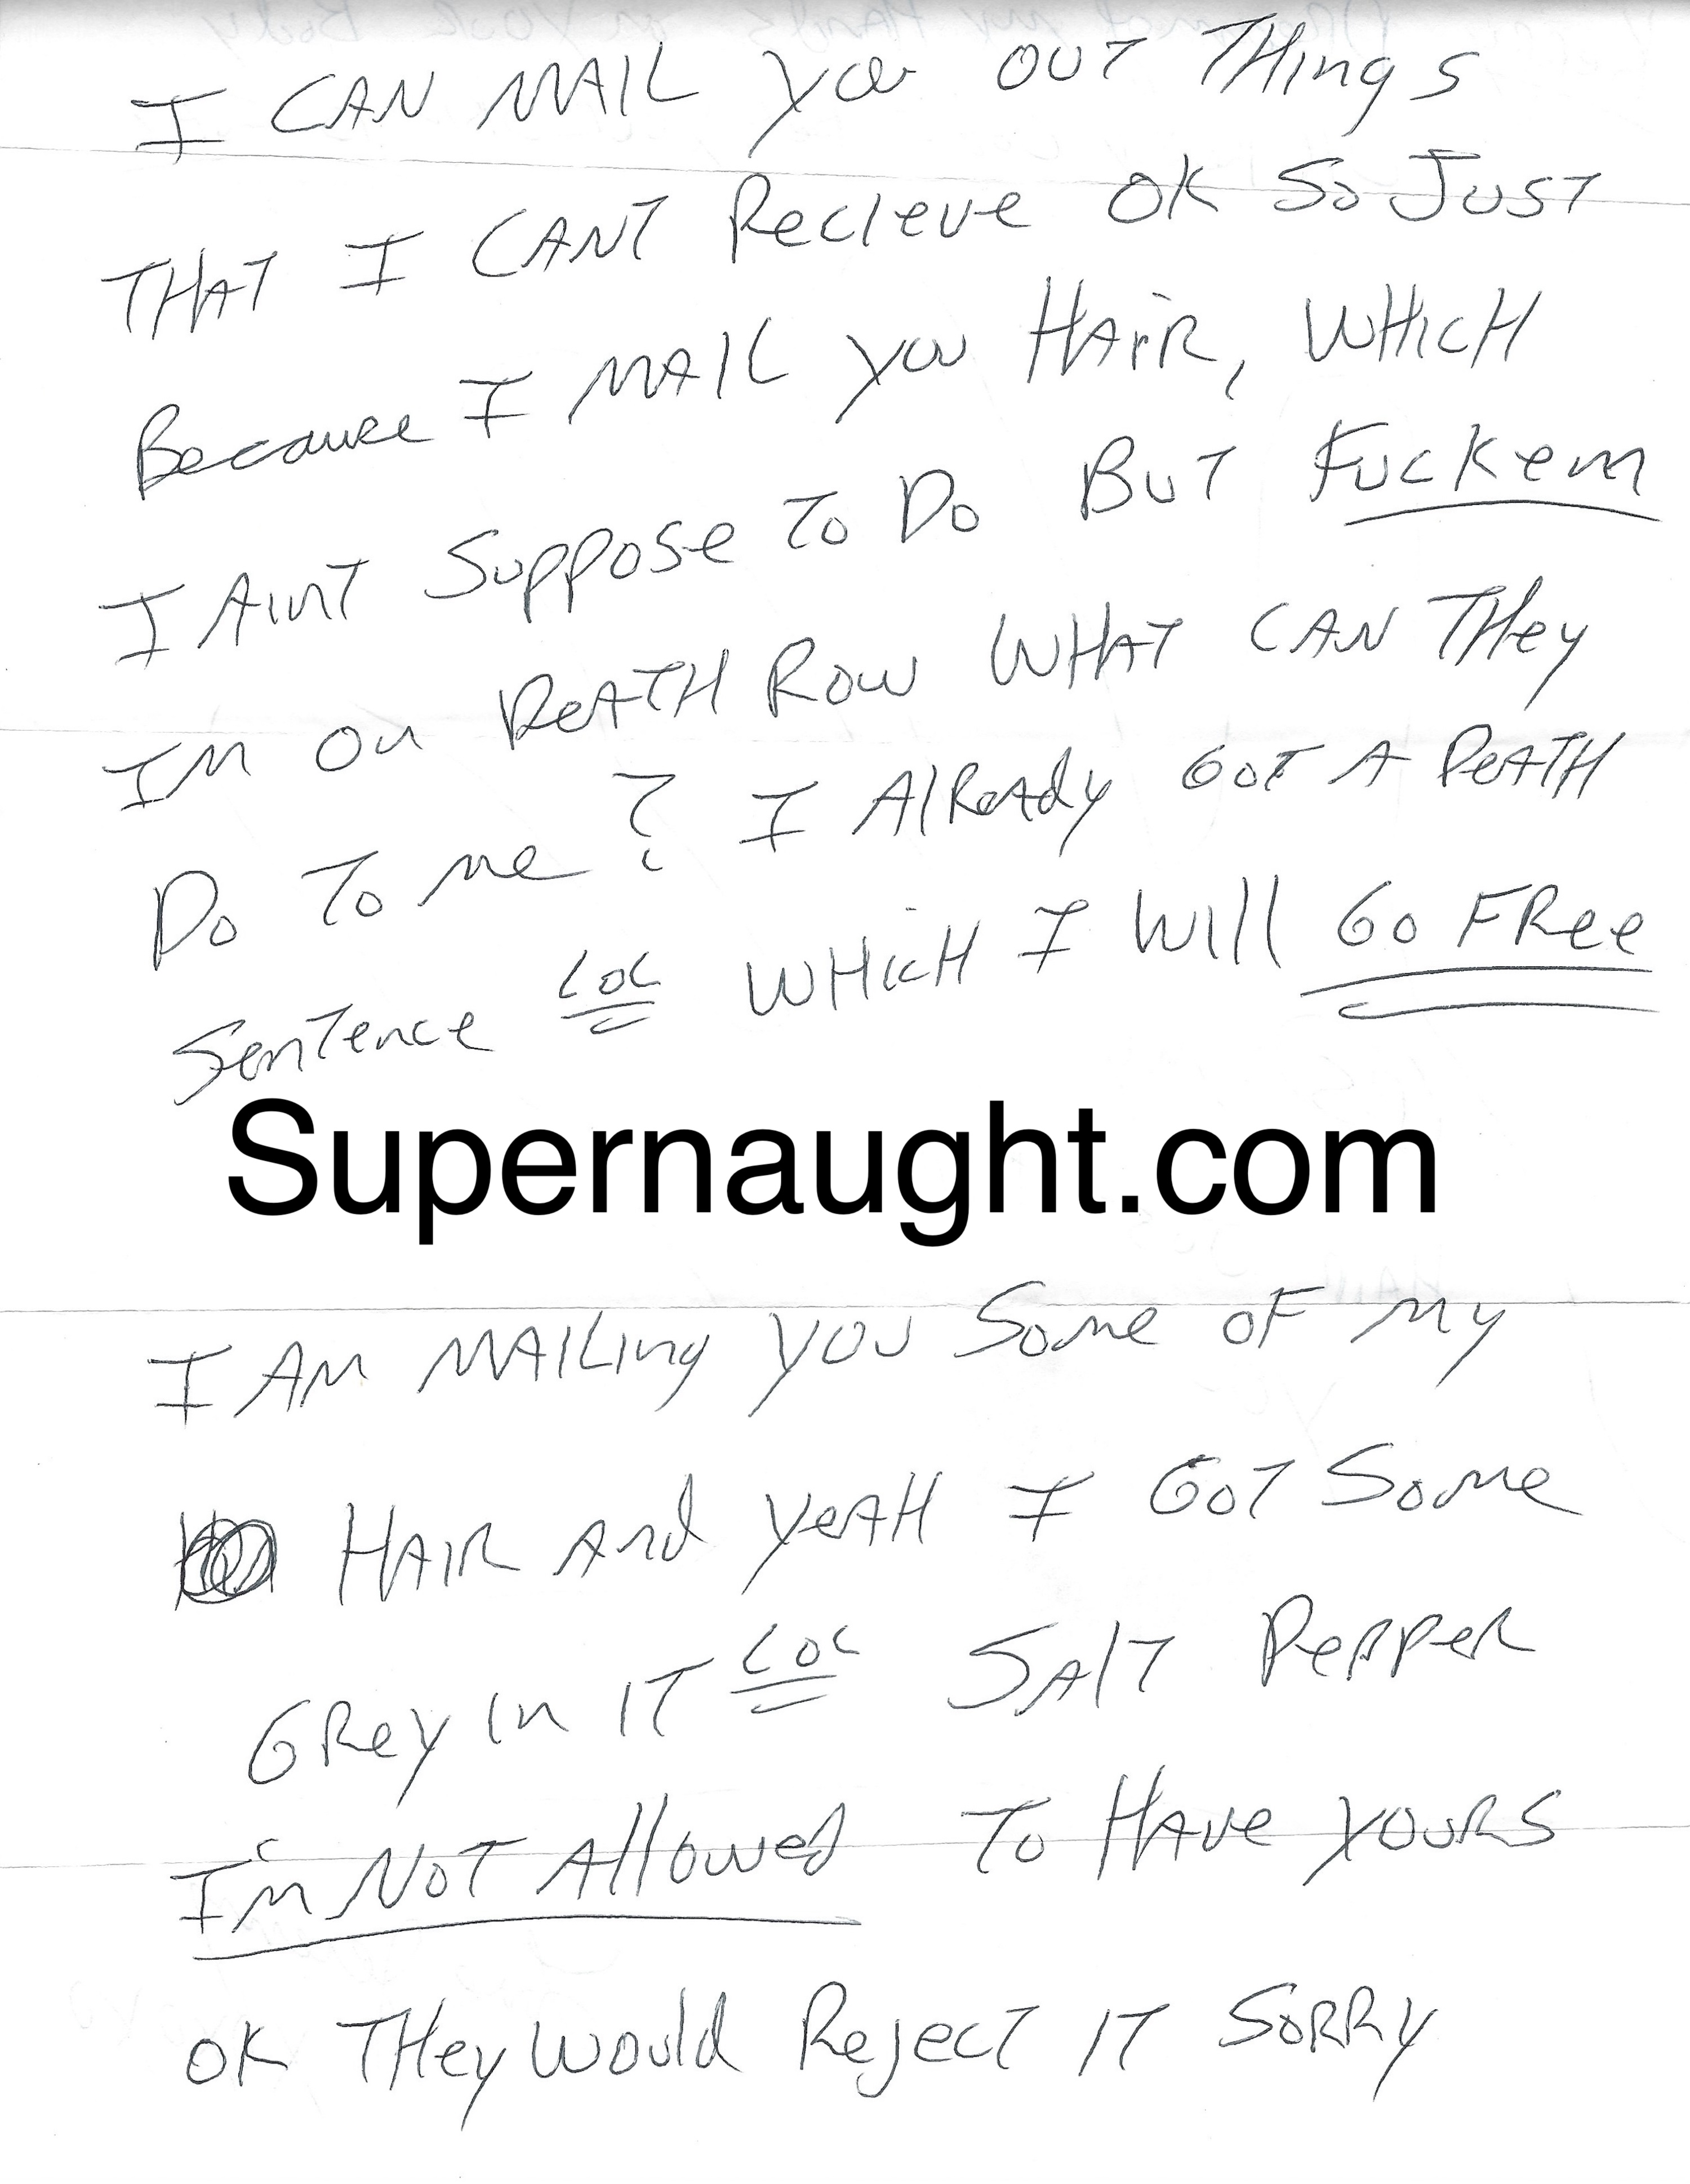 I CAN MAIL you OUT THings
THAT I CANT Recieve OK So JUST
Because I MAIL you HAiR, WHICH
I AinT Suppose To Do BuT Fuckem
IM On DeATH Row WHAT CAN THey
Do To me ? I AlReAdy GOT A DeATH
SenTence LOL WHicH I Will Go FRee
Supernaught.com
I AM MAILing YOU Some OF My
HAIR And YeAH I GoT Some
GRey In IT LOL SAlT PePPeR
I'm NoT Allowed To HAve YOURS
OK THey Would RejecT IT SORRy